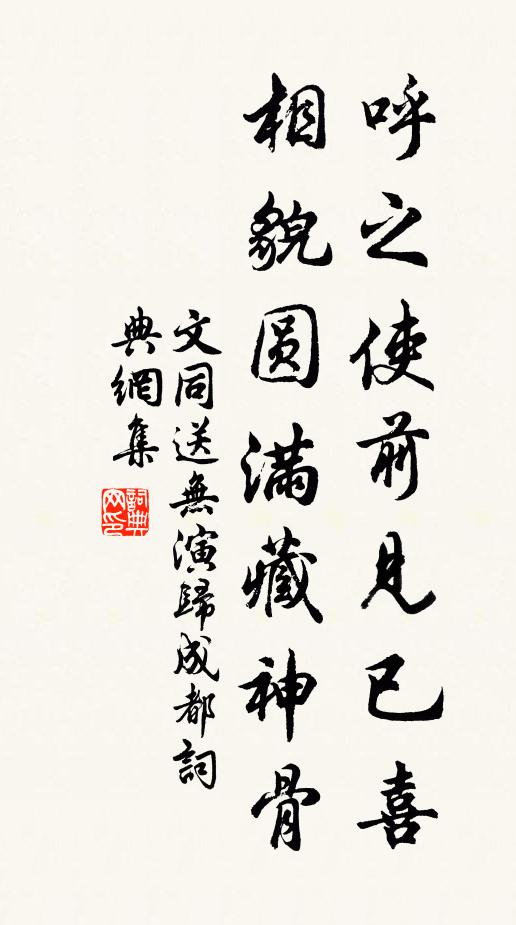 呼之使前見已喜
相貌圆滿藏神骨
文同送無演歸成都詞
典網集
詞典
网印